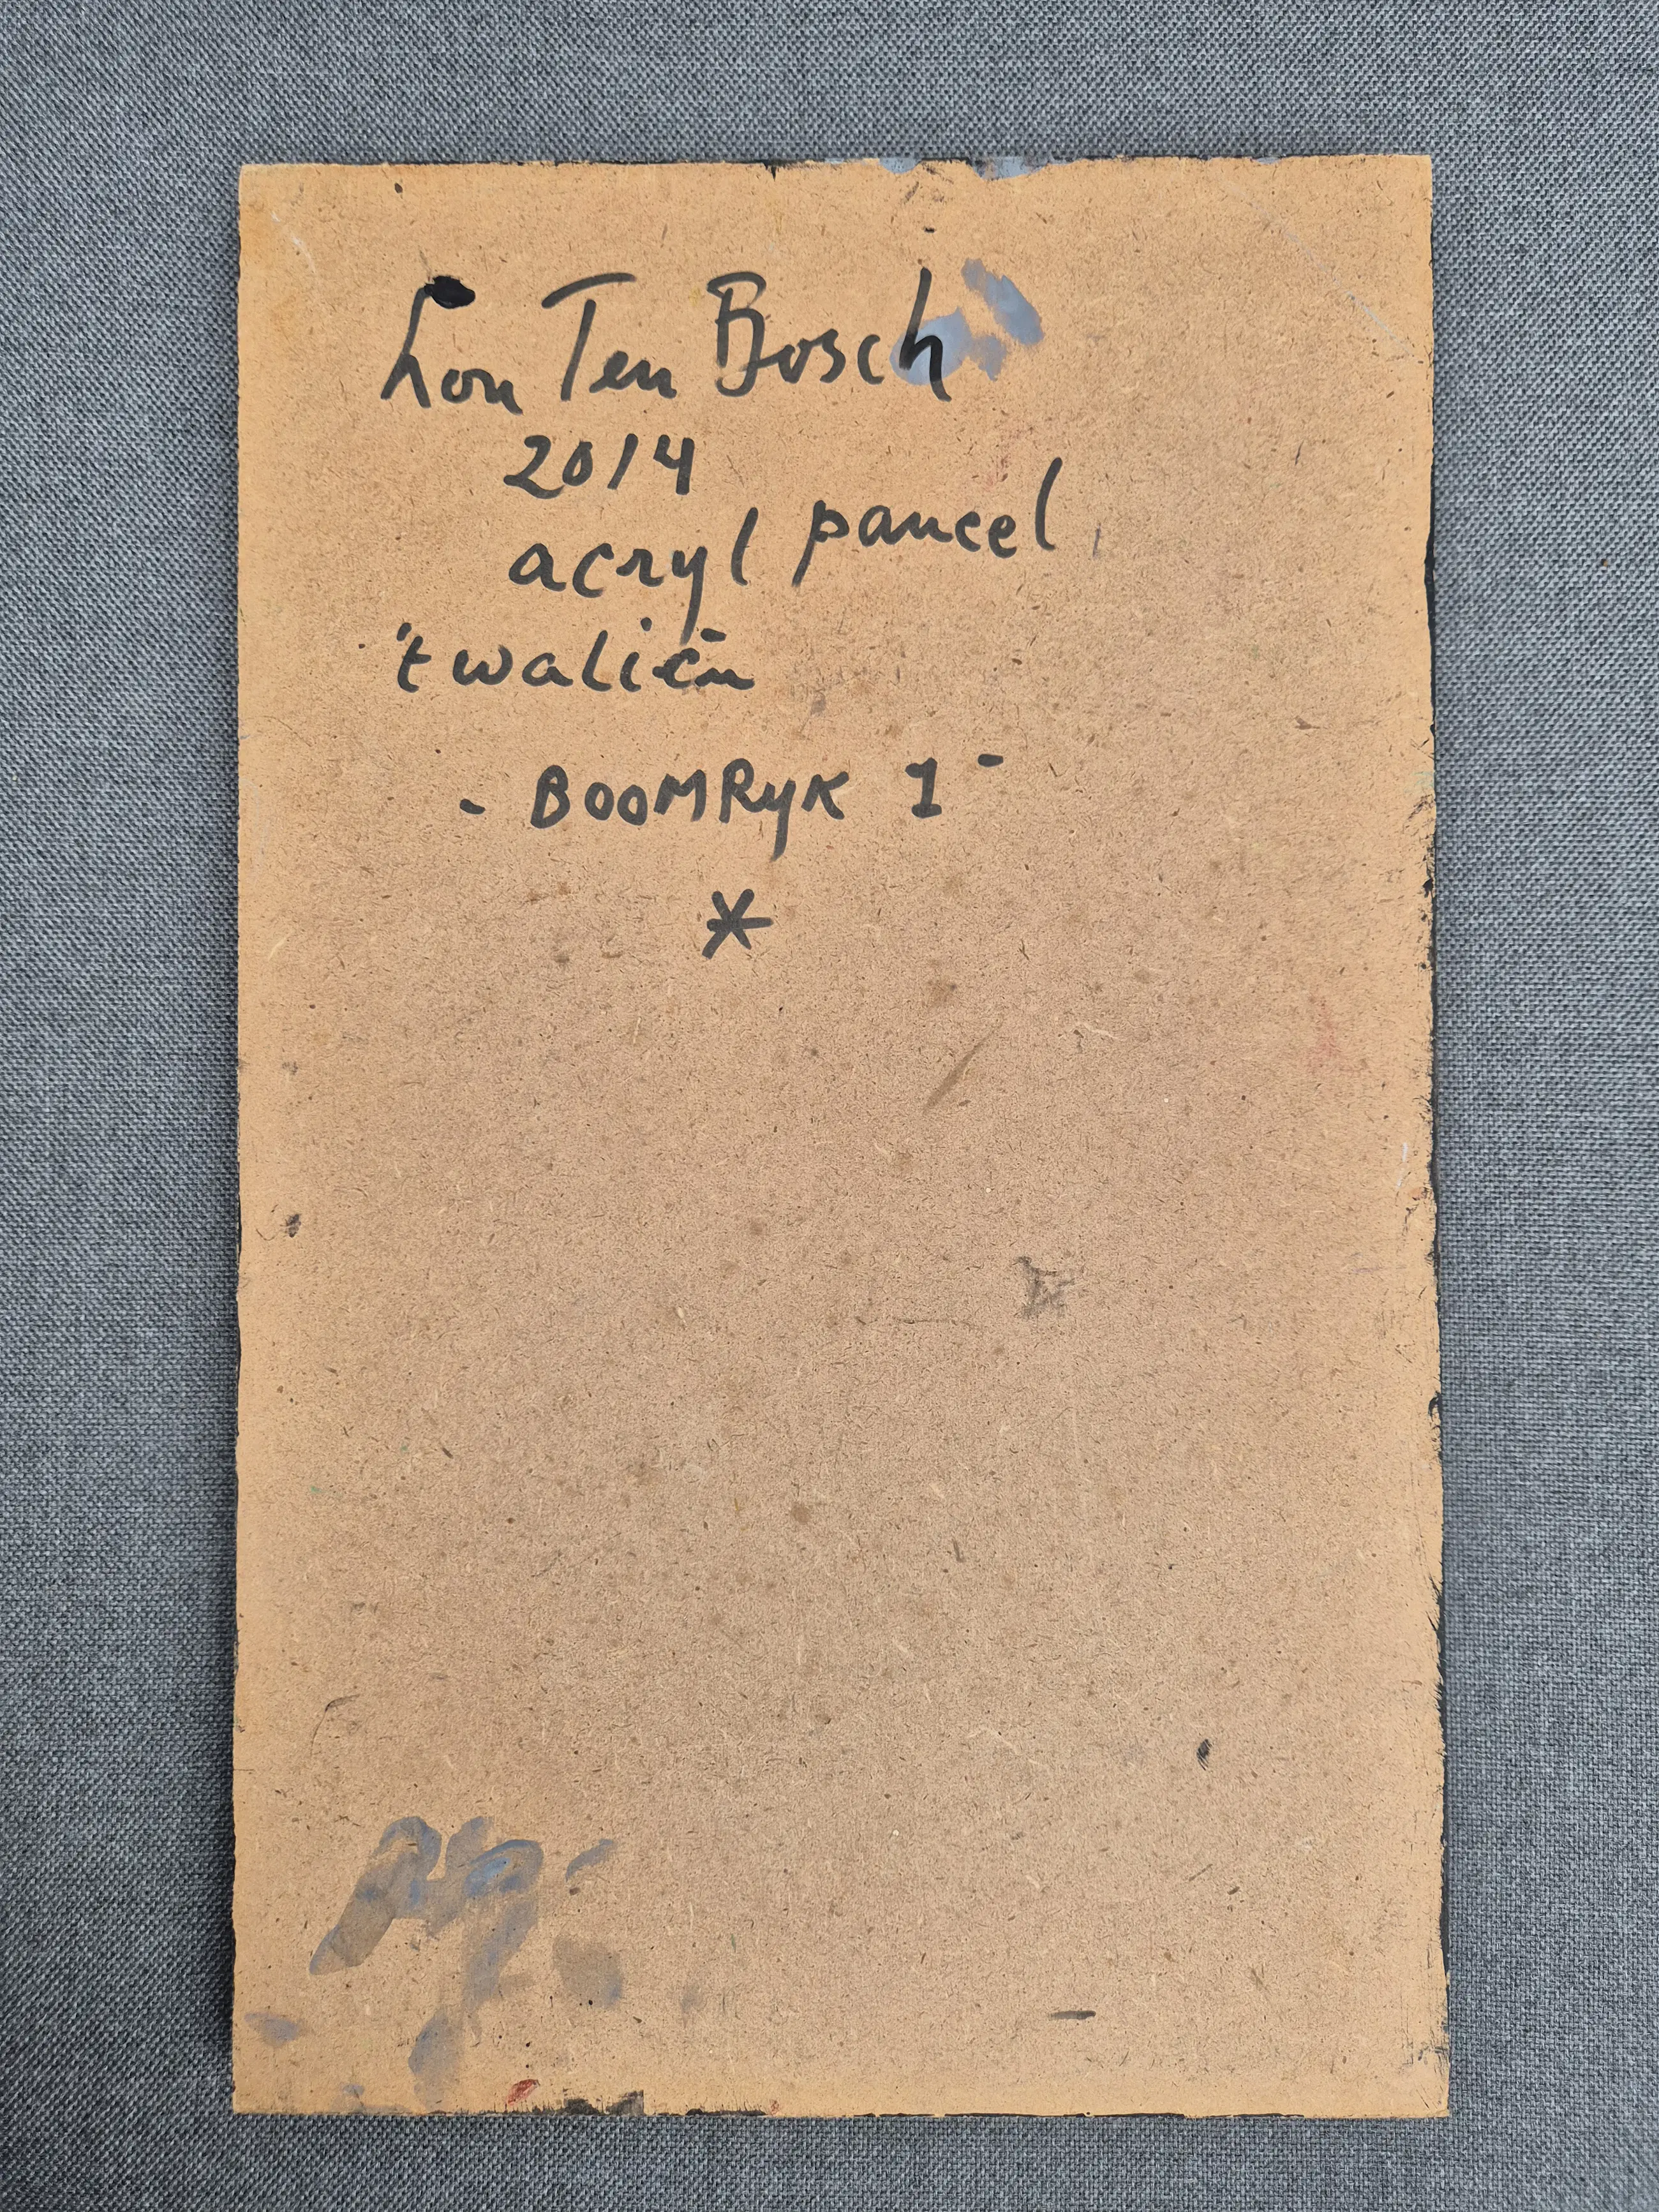 Lon Ten Bosch
2014
acryl paneel
't waliën
- BOOMRYK 1 -
*